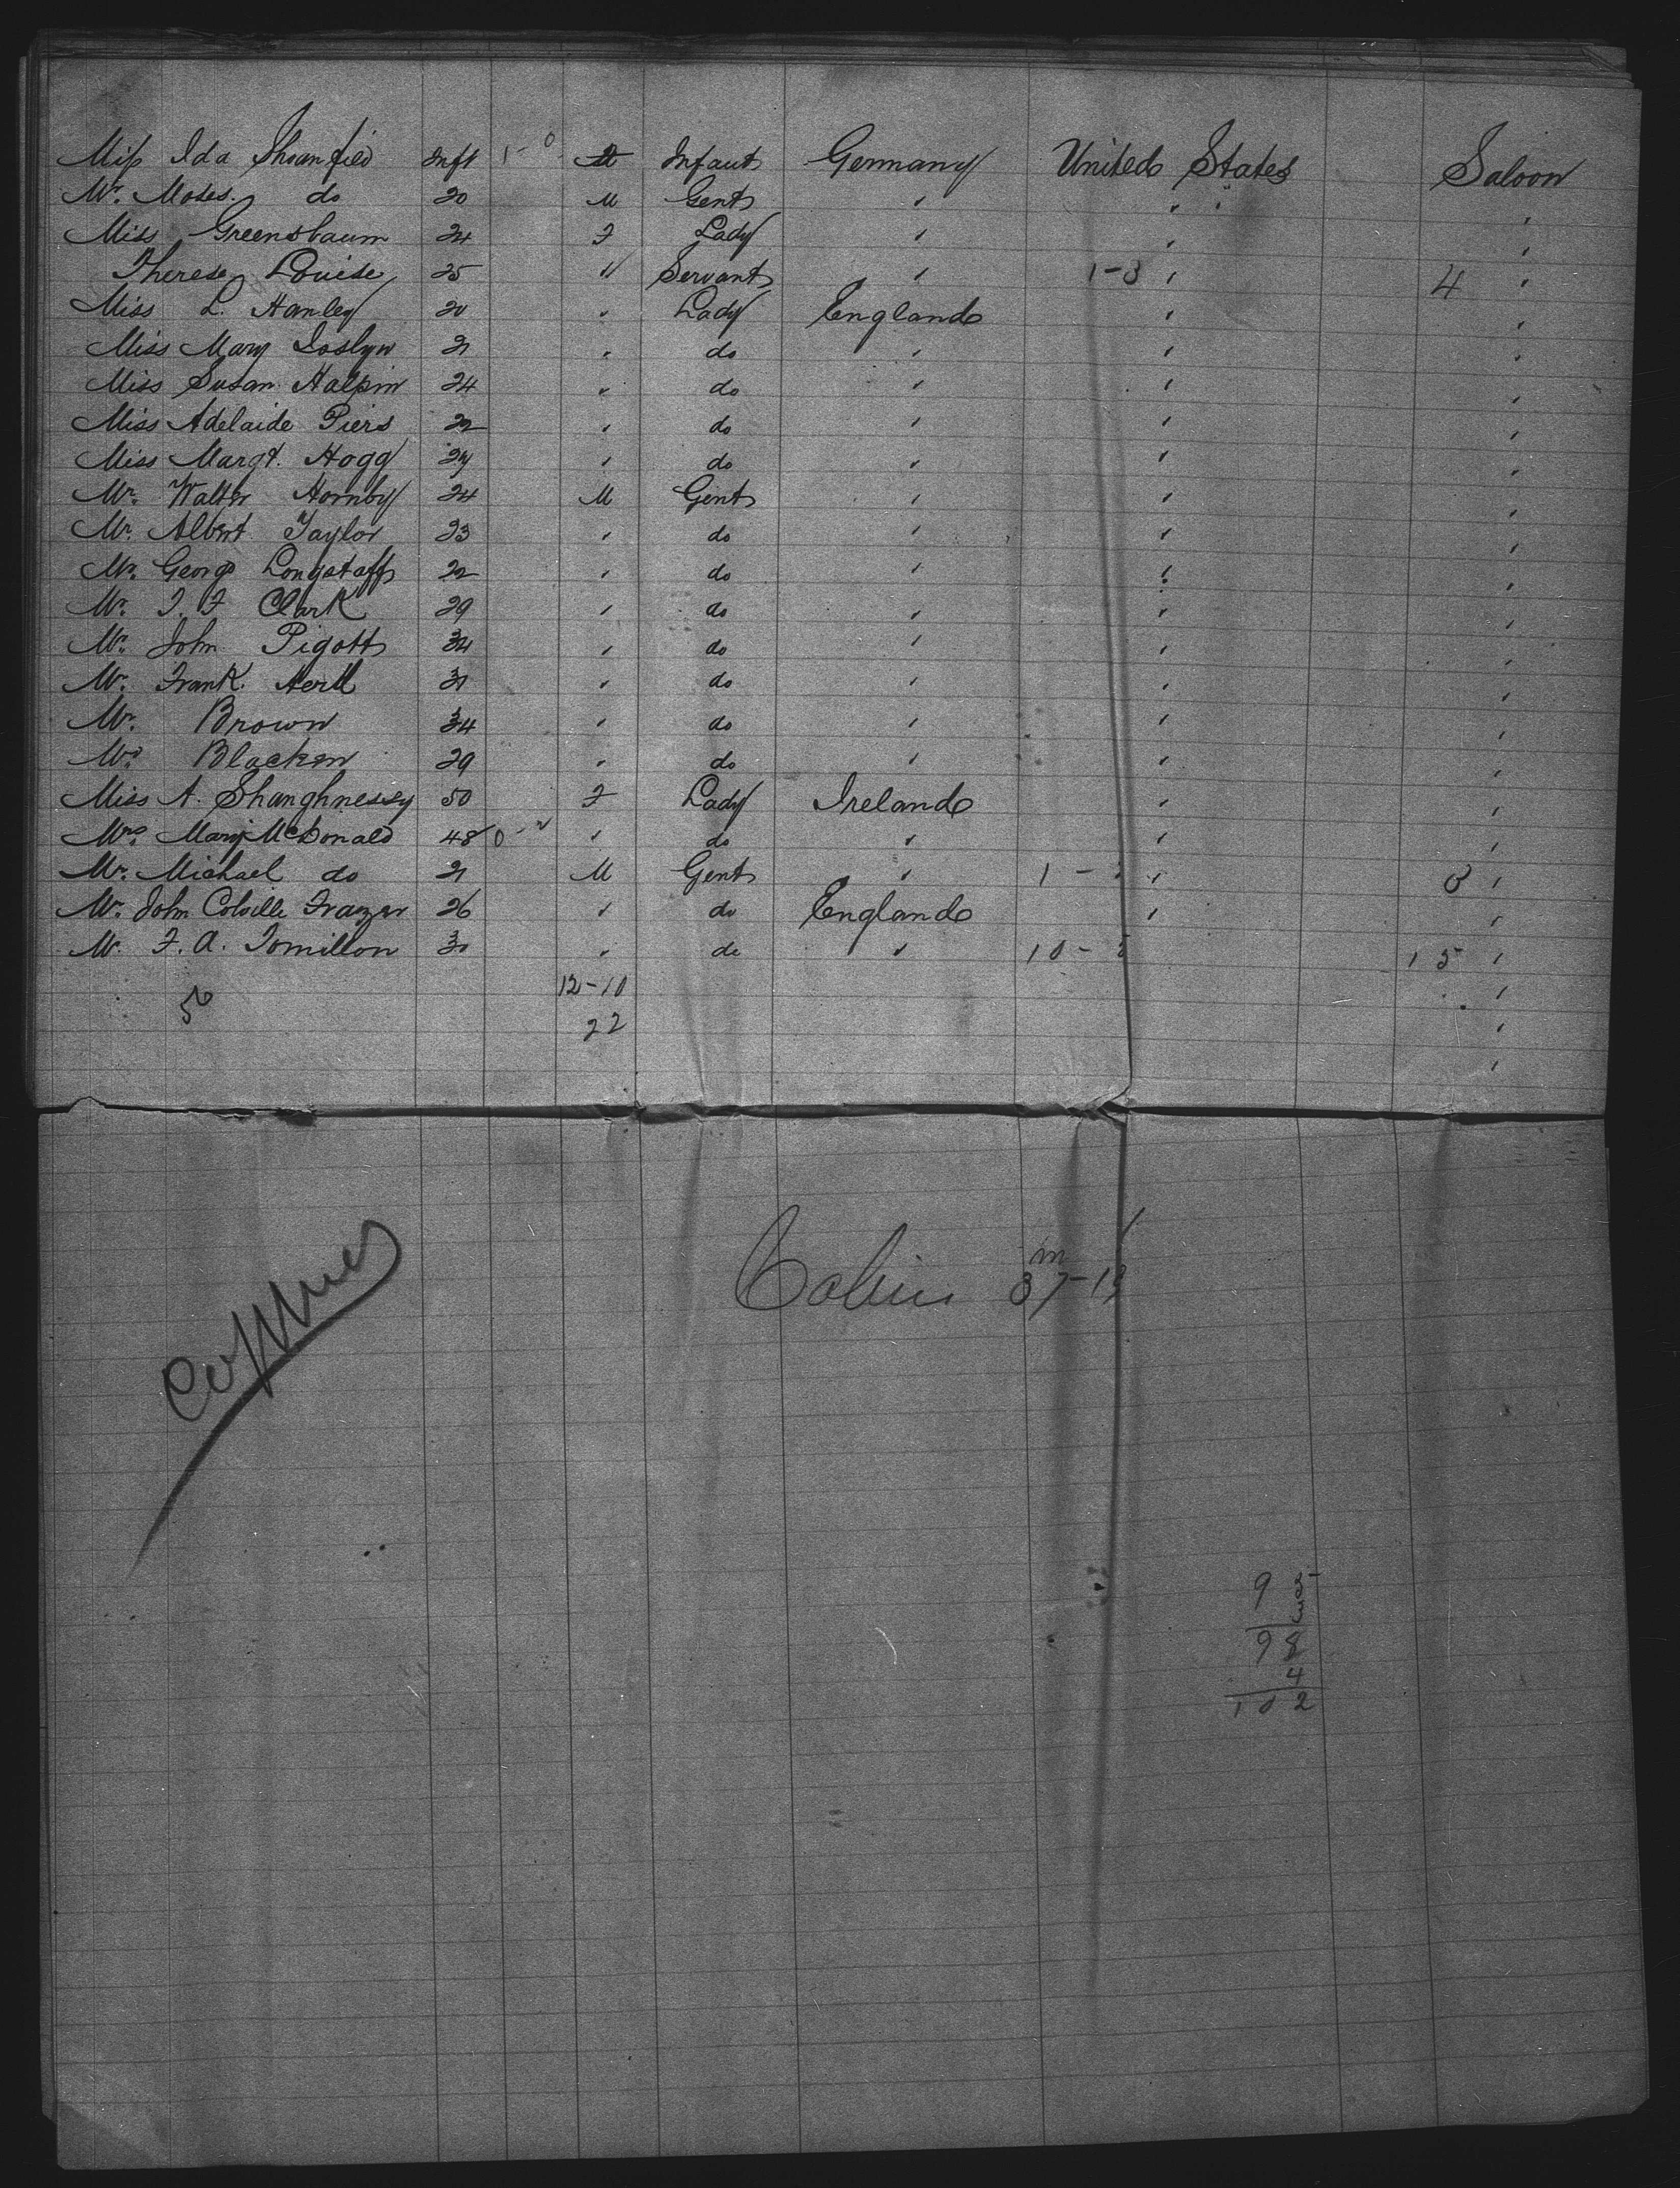 Miss Ida Inft 1-0 Infant Germany United States Saloon
Mr. Moses do 20 M Gent " " " "
Miss Greensbaum 24 F Lady " " "
Therese Louise 25 " Servant " 1-3 " 4 "
Miss L. Hanley 20 " Lady England " "
Miss Mary Joslyn 21 " do " " "
Miss Susan Halpin 24 " do " " "
Miss Adelaide Piers 22 " do " " "
Miss Margt. Hogg 24 " do " " "
Mr. Walter Hornby 24 M Gent " " "
Mr. Albert Taylor 23 " do " " "
Mr. George Longstaff 22 " do " " "
Mr. Clark 29 " do " " "
Mr. John Pigott 34 " do " " "
Mr. Frank 31 " do " " "
Mr. Brown 34 " do " " "
Mr. 29 " do " " "
Miss A. Shanghnessy 50 F Lady Ireland " "
Mrs. Mary McDonald 48 " do " " "
Mr. Michael do 21 M Gent " 1 - " "
Mr. John Colville Frazer 26 " do England " "
Mr. F. A. Tomillon 30 " do " 10 - 15 "
12-10
22
Cabin 37-13
9
98
4
102